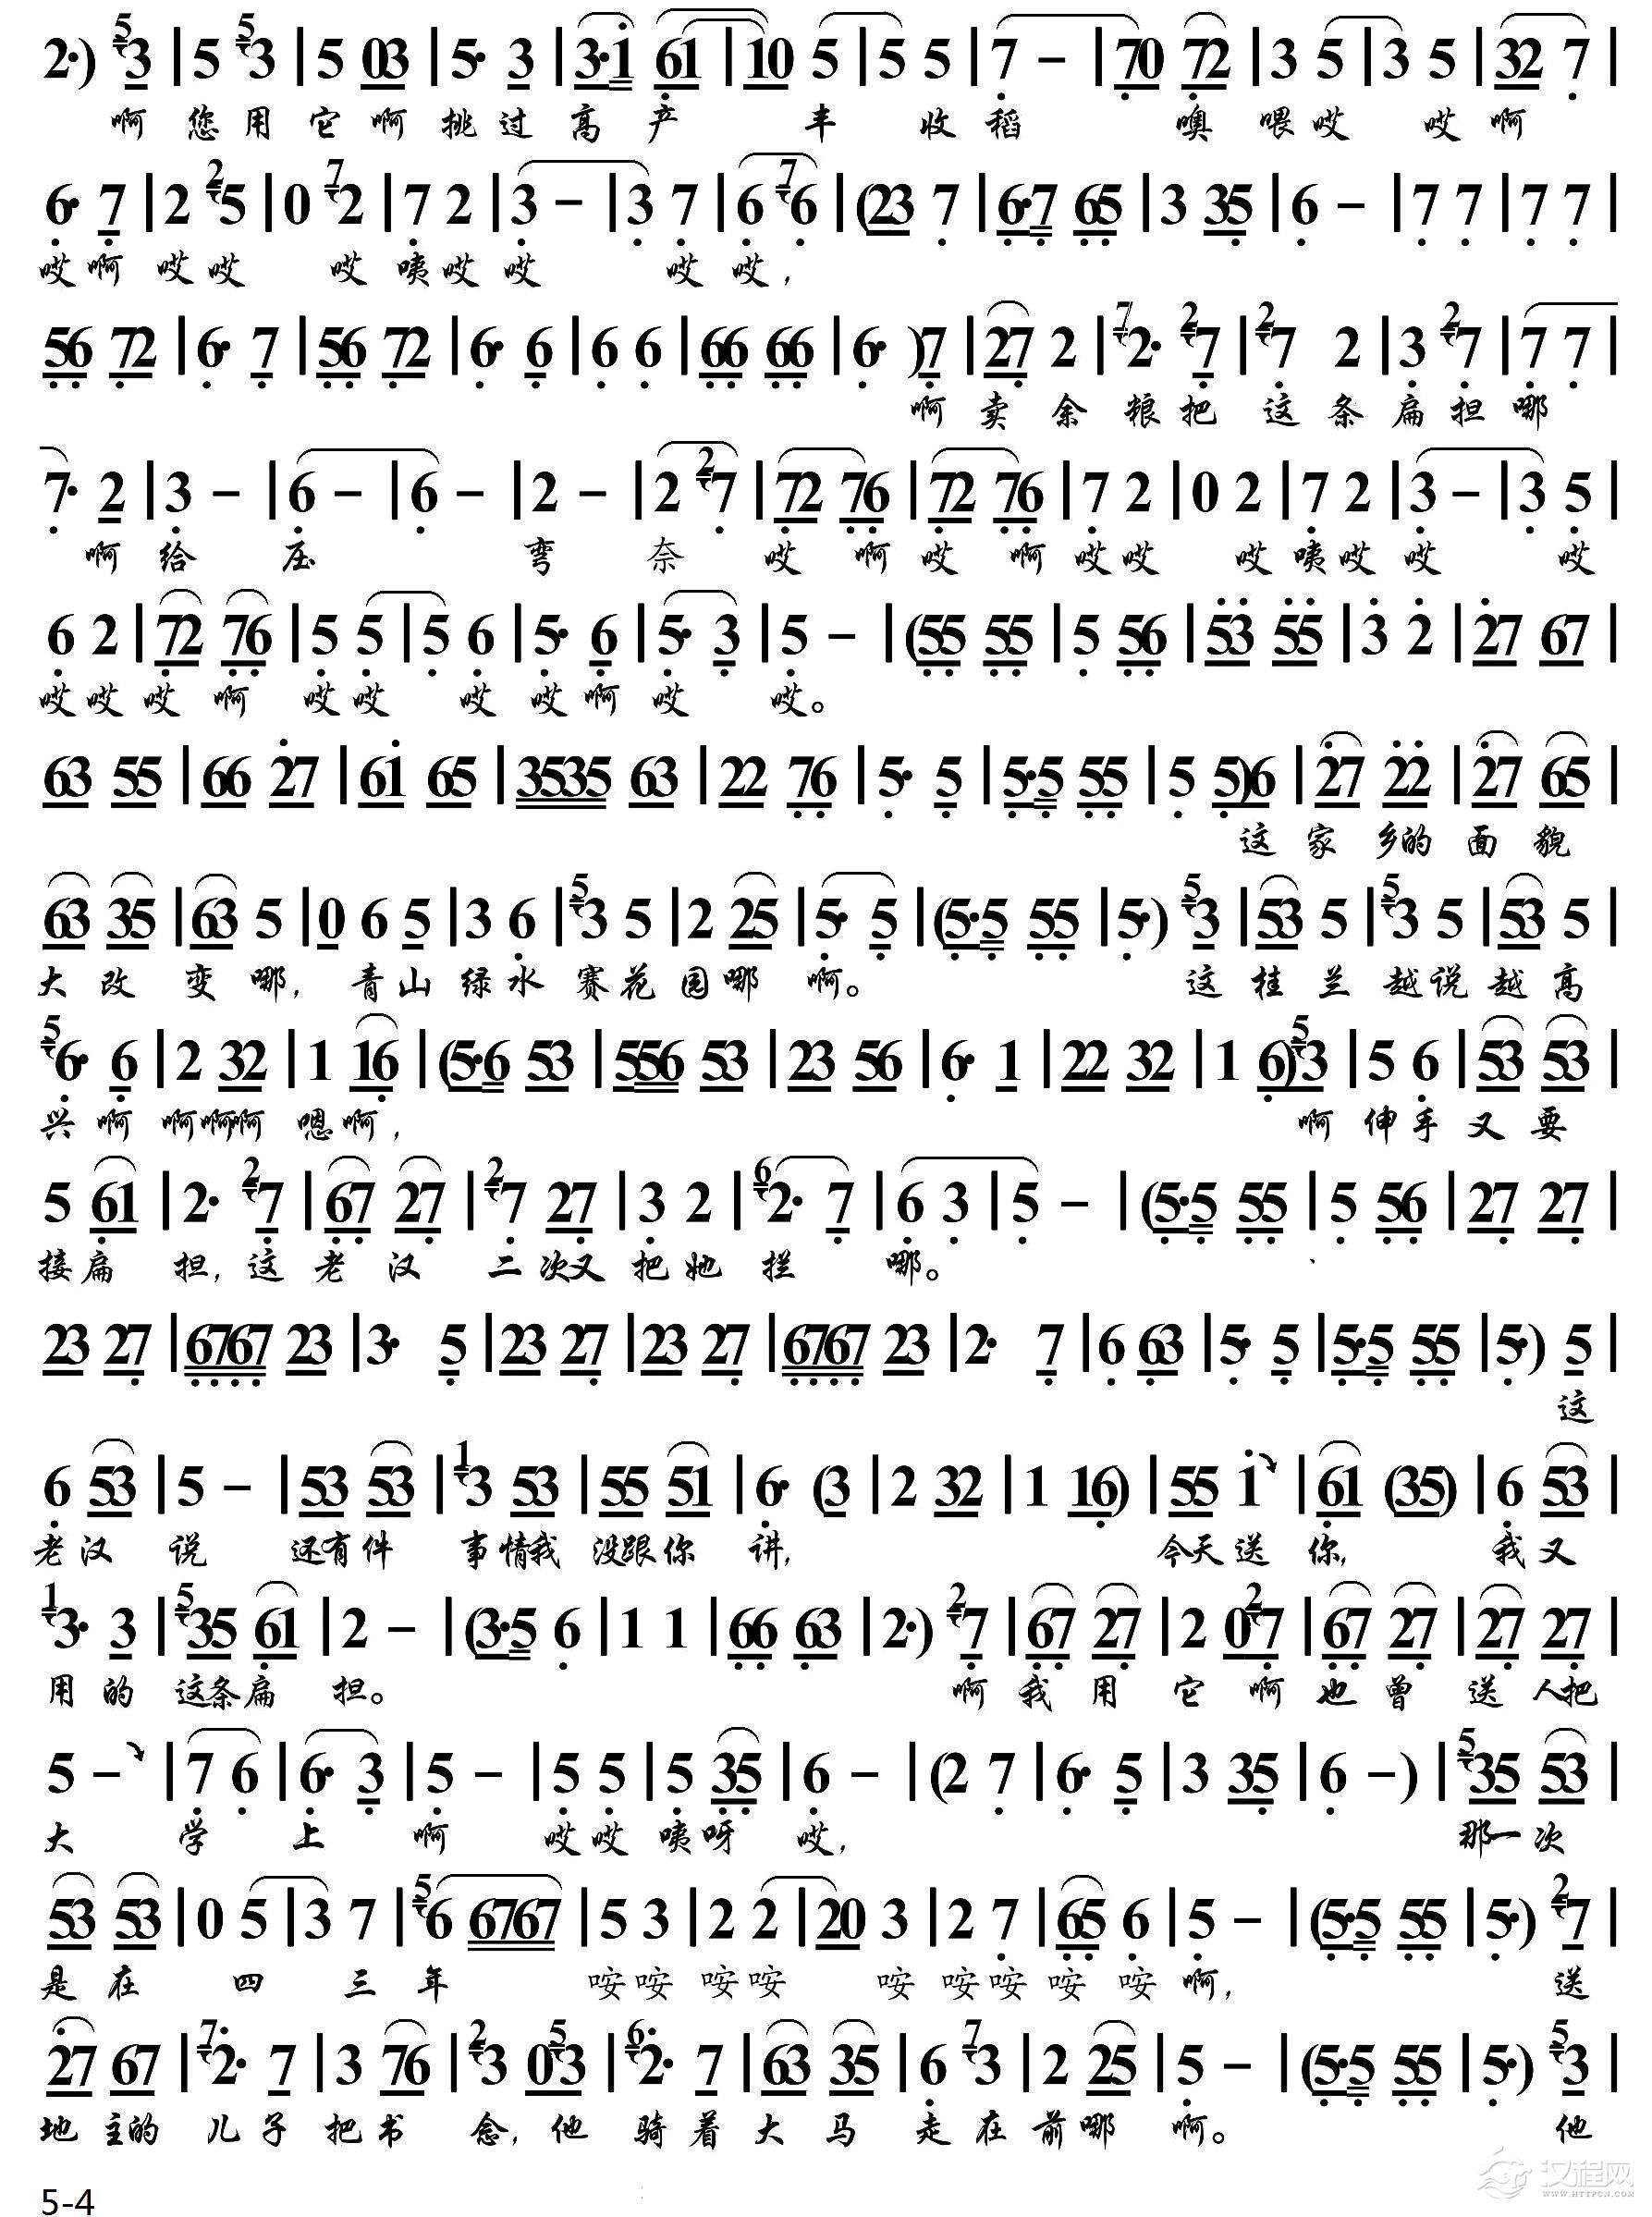 2·) 5 3 | 5 5 3 | 5 03 | 5· 3 | 3·1 61 | 10 5 | 5 5 | 7 - | 70 72 | 3 5 | 3 5 | 32 7 |
啊 您 用 它 啊 挑 过 高 产 丰 收 稻 噢 喂 哎 哎 啊
6· 7 | 2 2 5 | 0 7 2 | 7 2 | 3 - | 3 7 | 6 7 6 | (23 7 | 6·7 65 | 3 35 | 6 - | 7 7 | 7 7 |
哎 啊 哎 哎 哎 咦 哎 哎 哎 哎,
56 72 | 6· 7 | 56 72 | 6· 6 | 6 6 | 66 66 | 6· ) 7 | 27 2 | 7 2· 2 7 | 2 7 2 | 3 2 7 | 7 7 |
啊 卖 余 粮 把 这 条 扁 担 哪
7· 2 | 3 - | 6 - | 6 - | 2 - | 2 2 7 | 72 76 | 72 76 | 7 2 | 0 2 | 7 2 | 3 - | 3 5 |
啊 给 压 弯 奈 哎 啊 哎 啊 哎 哎 哎 咦 哎 哎 哎
6 2 | 72 76 | 5 5 | 5 6 | 5· 6 | 5· 3 | 5 - | (55 55 | 5 56 | 53 55 | 3 2 | 27 67 |
哎 哎 哎 啊 哎 哎 哎 哎 啊 哎 哎。
63 55 | 66 27 | 61 65 | 3535 63 | 22 76 | 5· 5 | 5·5 55 | 5 5)6 | 27 22 | 27 65 |
这 家 乡的 面 貌
63 35 | 63 5 | 0 6 5 | 3 6 | 5 3 5 | 2 25 | 5· 5 | (5·5 55 | 5·) 5 3 | 53 5 | 5 3 5 | 53 5 |
大 改 变 哪, 青 山 绿 水 赛 花 园 哪 啊。 这 桂 兰 越 说 越 高
5 6· 6 | 2 32 | 1 16 | (5·6 53 | 556 53 | 23 56 | 6· 1 | 22 32 | 1 6) 5 3 | 5 6 | 53 53 |
兴 啊 啊 啊啊 嗯 啊, 啊 伸 手 又 要
5 61 | 2· 2 7 | 67 27 | 2 7 27 | 3 2 | 6 2· 7 | 6 3 | 5 - | (5·5 55 | 5 56 | 27 27 |
接 扁 担, 这 老 汉 二 次又 把 她 拦 哪。
23 27 | 6767 23 | 3· 5 | 23 27 | 23 27 | 6767 23 | 2· 7 | 6 63 | 5· 5 | 5·5 55 | 5·) 5 |
这
6 53 | 5 - | 53 53 | 1 3 53 | 55 51 | 6· (3 | 2 32 | 1 16) | 55 1 | 61 (35) | 6 53 |
老 汉 说 还有 件 事 情我 没跟 你 讲, 今天 送 你, 我 又
1 3· 3 | 5 35 61 | 2 - | (3·5 6 | 1 1 | 66 63 | 2·) 2 7 | 67 27 | 2 0 2 7 | 67 27 | 27 27 |
用 的 这条 扁 担。 啊 我 用 它 啊 也 曾 送 人把
5 - | 7 6 | 6· 3 | 5 - | 5 5 | 5 35 | 6 - | (2 7 | 6· 5 | 3 35 | 6 -) | 5 35 53 |
大 学 上 啊 哎 哎 咦 呀 哎, 那一 次
53 53 | 0 5 | 3 7 | 5 6 6767 | 5 3 | 2 2 | 20 3 | 2 7 | 65 6 | 5 - | (5·5 55 | 5·) 2 7 |
是 在 四 三 年 咹 咹 咹 咹 咹 咹 咹 咹 咹 啊, 送
27 67 | 7 2· 7 | 3 76 | 2 3 0 5 3 | 6 2· 7 | 63 35 | 6 7 3 | 2 25 | 5 - | (5·5 55 | 5·) 5 3 |
地 主的 儿 子 把 书 念, 他 骑 着 大 马 走 在 前 哪 啊。 他
5-4
汉程网
WWW.HTTPCN.COM